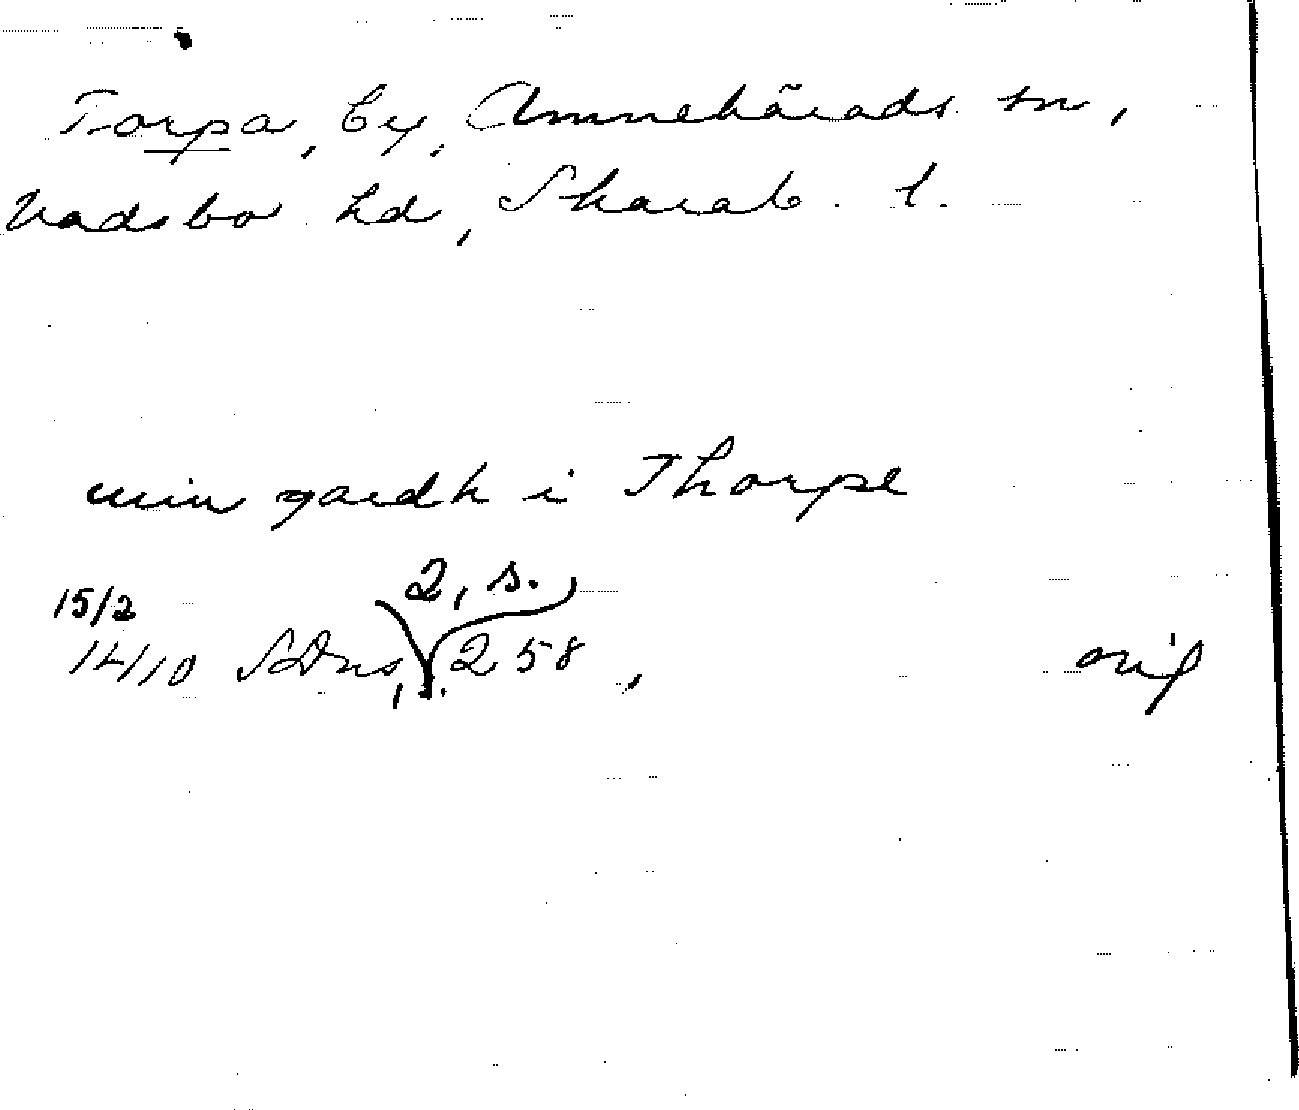 Torpa, by, Amnehärads sn,
Vadsbo hd, Skarab. l.
min gardh i Thorpe
2, s.
15/2
1410 SDns, 258,
orig